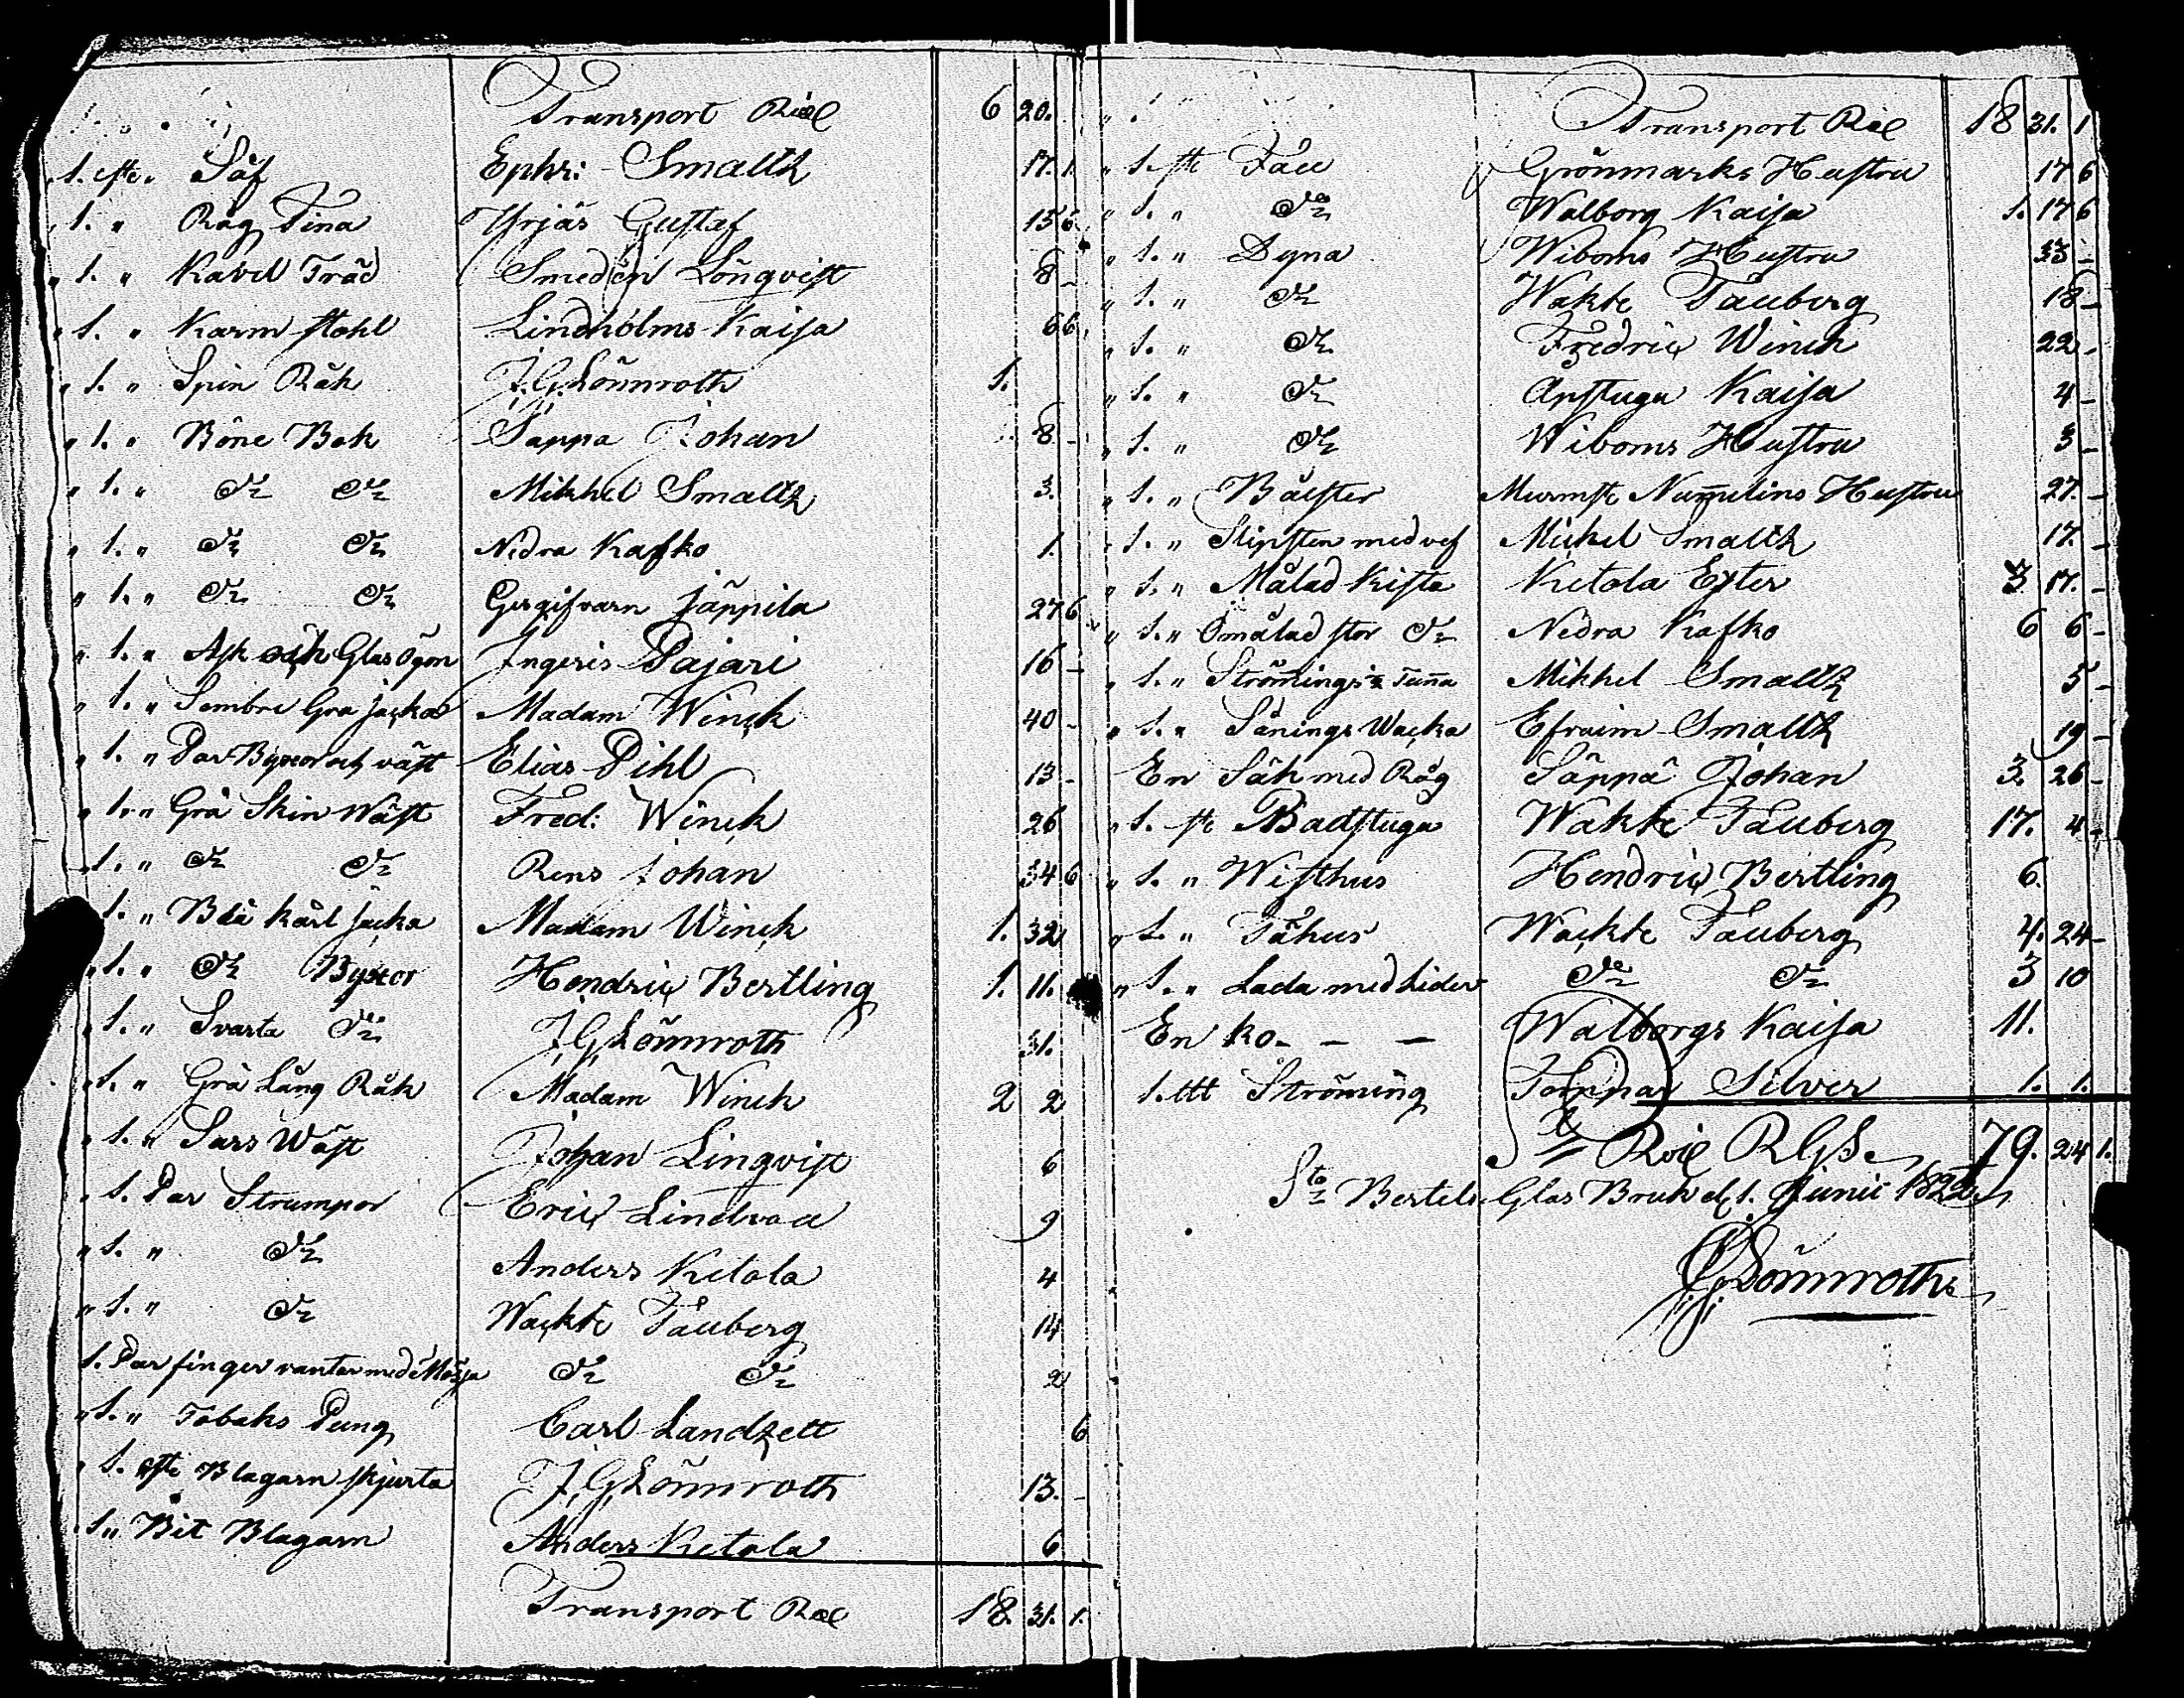 Transport Rdl 6 20.
1. ste Såf Ephr: Smaltz 17. 1.
" 1. " Råg Tina Yrjäs Gustaf 15 6
" 1. " Kavel Träd Smeden Lönqvist 8 –
" 1. " Karm stohl Lindholms Kaisa 6 6
" 1. " Spin Råk J. G. Lönnroth 1.
" 1. " Böne Bok Säppä Johan 8 –
" 1. " Do Do Mikkel Smaltz 3.
" 1. " Do Do Nedra Kafko 1.
" 1. " Do Do Gergifvarn Jäppila 27 6
" 1. " Ask och Glas Ögon Ingeris Pajari 16 –
" 1. " Sembre Gra jacka Madam Winck 40 –
" 1. " Par Byxor och väst Elias Pihl 13 –
" 1. " Grå Skin Wäst Fred: Winck 26
" 1. " Do Do Rens Johan 34 6
1. " Blå karl jacka Madam Winck 1. 32
" 1. " Do Byxor Hendric Bertling 1. 11.
" 1. " Svarta Do J. G. Lönnroth 31.
" 1. " Grå Lång Råk Madam Winck 2 2
" 1. " Sars Wäst Johan Linqvist 6
" 1. Par Strumpor Eric Lindroa 9
" 1. " Do Anders Ketola 4
" 1. " Do Wackte Tauberg 14
1. Par finger vantar med Mössa Do Do 2
" 1. " Tobaks Pung Carl Landzett 6
" 1. ste Blagarn skjurta J. G. Lönnroth 13. –
" 1. " Bit Blagarn Anders Ketola 6
Transport Rdl 18. 31. 1.
Transport Rdl 18 31. 1
" 1. ste Täcc Grönmarks Hustru 17 6
" 1. " Do Walborg Kaisa 1. 17 6
" 1. " Dyna Wiboms Hustru 33 –
" 1. " Do Wakte Tauberg 18 –
" 1. " Do Fredric Winck 22 –
" 1. " Do Anstuga Kaisa 4 –
" 1. " Do Wiboms Hustru 3 –
" 1. " Bålster Murmst Nummelins Hustru 27. –
" 1. " Slipsten med vef Mickel Smaltz 17. –
" 1. " Målad Kista Ketola Ester 3 17. –
" 1. " Omålad stor Do Nedra Kafko 6 6 –
" 1. " Strömings Tunna Mikkel Smaltz 5 –
" 1. " Sånings Wacka Efraim Smaltz 19 –
En Säk med Råg Säppä Johan 3. 26 –
" 1. ste Badstuga Wakte Tauberg 17. 4 –
" 1. " Wisthus Hendric Bertling 6.
" 1. " Fähus Wackte Tauberg 4. 24 –
" 1. " Lada med Lider Do Do 3 10
En ko – – – Walborgs Kaisa 11.
1. ltt Ströming Torppar Silver 1. 1.
S = Rdl RGS 79. 24 1.
Sto Bertels Glas Bruk d. 1. Junii 1822
J. G. Lönnroth